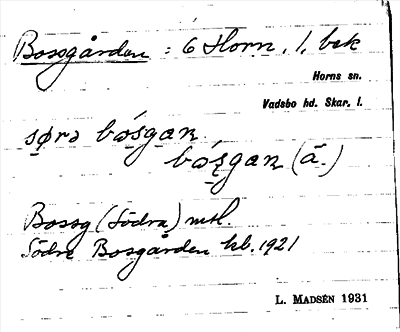 Bossgården : 6 Horn, 1, bek
Horns sn.
Vadsbo hd. Skar. l.
sørə bósgan
bósgan (ä.)
Bossg (Södra) mtl.
Södra Bosgården kb. 1921
L. MADSÉN 1931